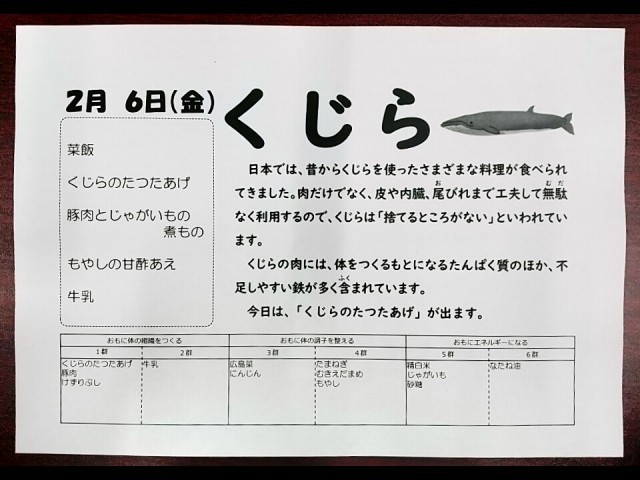 2月 6日(金)
くじら
菜飯
くじらのたつたあげ
豚肉とじゃがいもの
煮もの
もやしの甘酢あえ
牛乳
日本では、昔からくじらを使ったさまざまな料理が食べられ
てきました。肉だけでなく、皮や内臓、尾びれまで工夫して無駄
なく利用するので、くじらは「捨てるところがない」といわれてい
ます。
くじらの肉には、体をつくるもとになるたんぱく質のほか、不
足しやすい鉄が多く含まれています。
今日は、「くじらのたつたあげ」が出ます。
おもに体の組織をつくる おもに体の調子を整える おもにエネルギーになる
1群 2群 3群 4群 5群 6群
くじらのたつたあげ 牛乳 広島菜 たまねぎ 精白米 なたね油
豚肉 にんじん むきえだまめ じゃがいも
けずりぶし もやし 砂糖